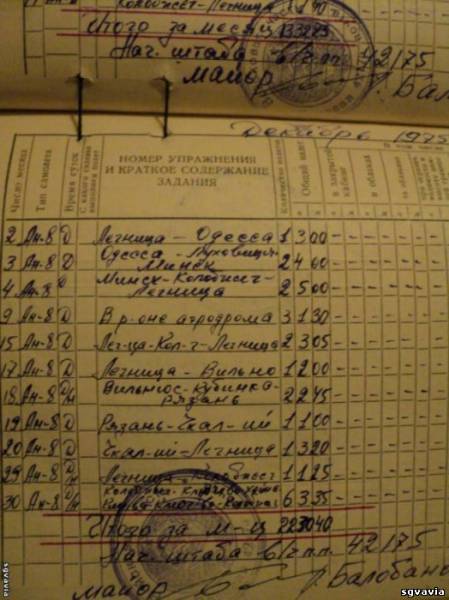 Колобжег-Легница 1
Итого за месяц 133225
Нач. штаба в/ч п.п. 42175
майор Г. Бал
Декабрь 1975
Число месяца
Тип самолета
Время суток
НОМЕР УПРАЖНЕНИЯ
И КРАТКОЕ СОДЕРЖАНИЕ
ЗАДАНИЯ
Количество полетов
Общий налет
в закрытой кабине
в облаках
за облаками
2 Ан-8 Д Легница - Одесса 1 3 00 - - - -
3 Ан-8 Д Одесса - Минск 2 4 00 - - - -
4 Ан-8 Д Минск-Колобжег-Легница 2 5 00 - - - -
9 Ан-8 Д В р-оне аэродрома 3 1 30 - - - -
15 Ан-8 Д Лег-ца-Кол-г-Легница 2 3 05 - - - -
17 Ан-8 Д Легница - Вильно 1 2 00 - - - -
18 Ан-8 Д/Н Вильнюс-Кубинка-Рязань 2 2 45 - - - -
19 Ан-8 Д Рязань-Чкал-ий 1 1 00 - - - -
20 Ан-8 Д Чкал-ий-Легница 1 3 20 - - - -
29 Ан-8 Д/Н Легница - Колобжег 1 1 25 - - - -
30 Ан-8 Д/Н 6 3 35 - - - -
Итого за м-ц 22 30 40
Нач. штаба в/ч п.п. 42175
майор Г. Балобан
sgvavia
sgvavia